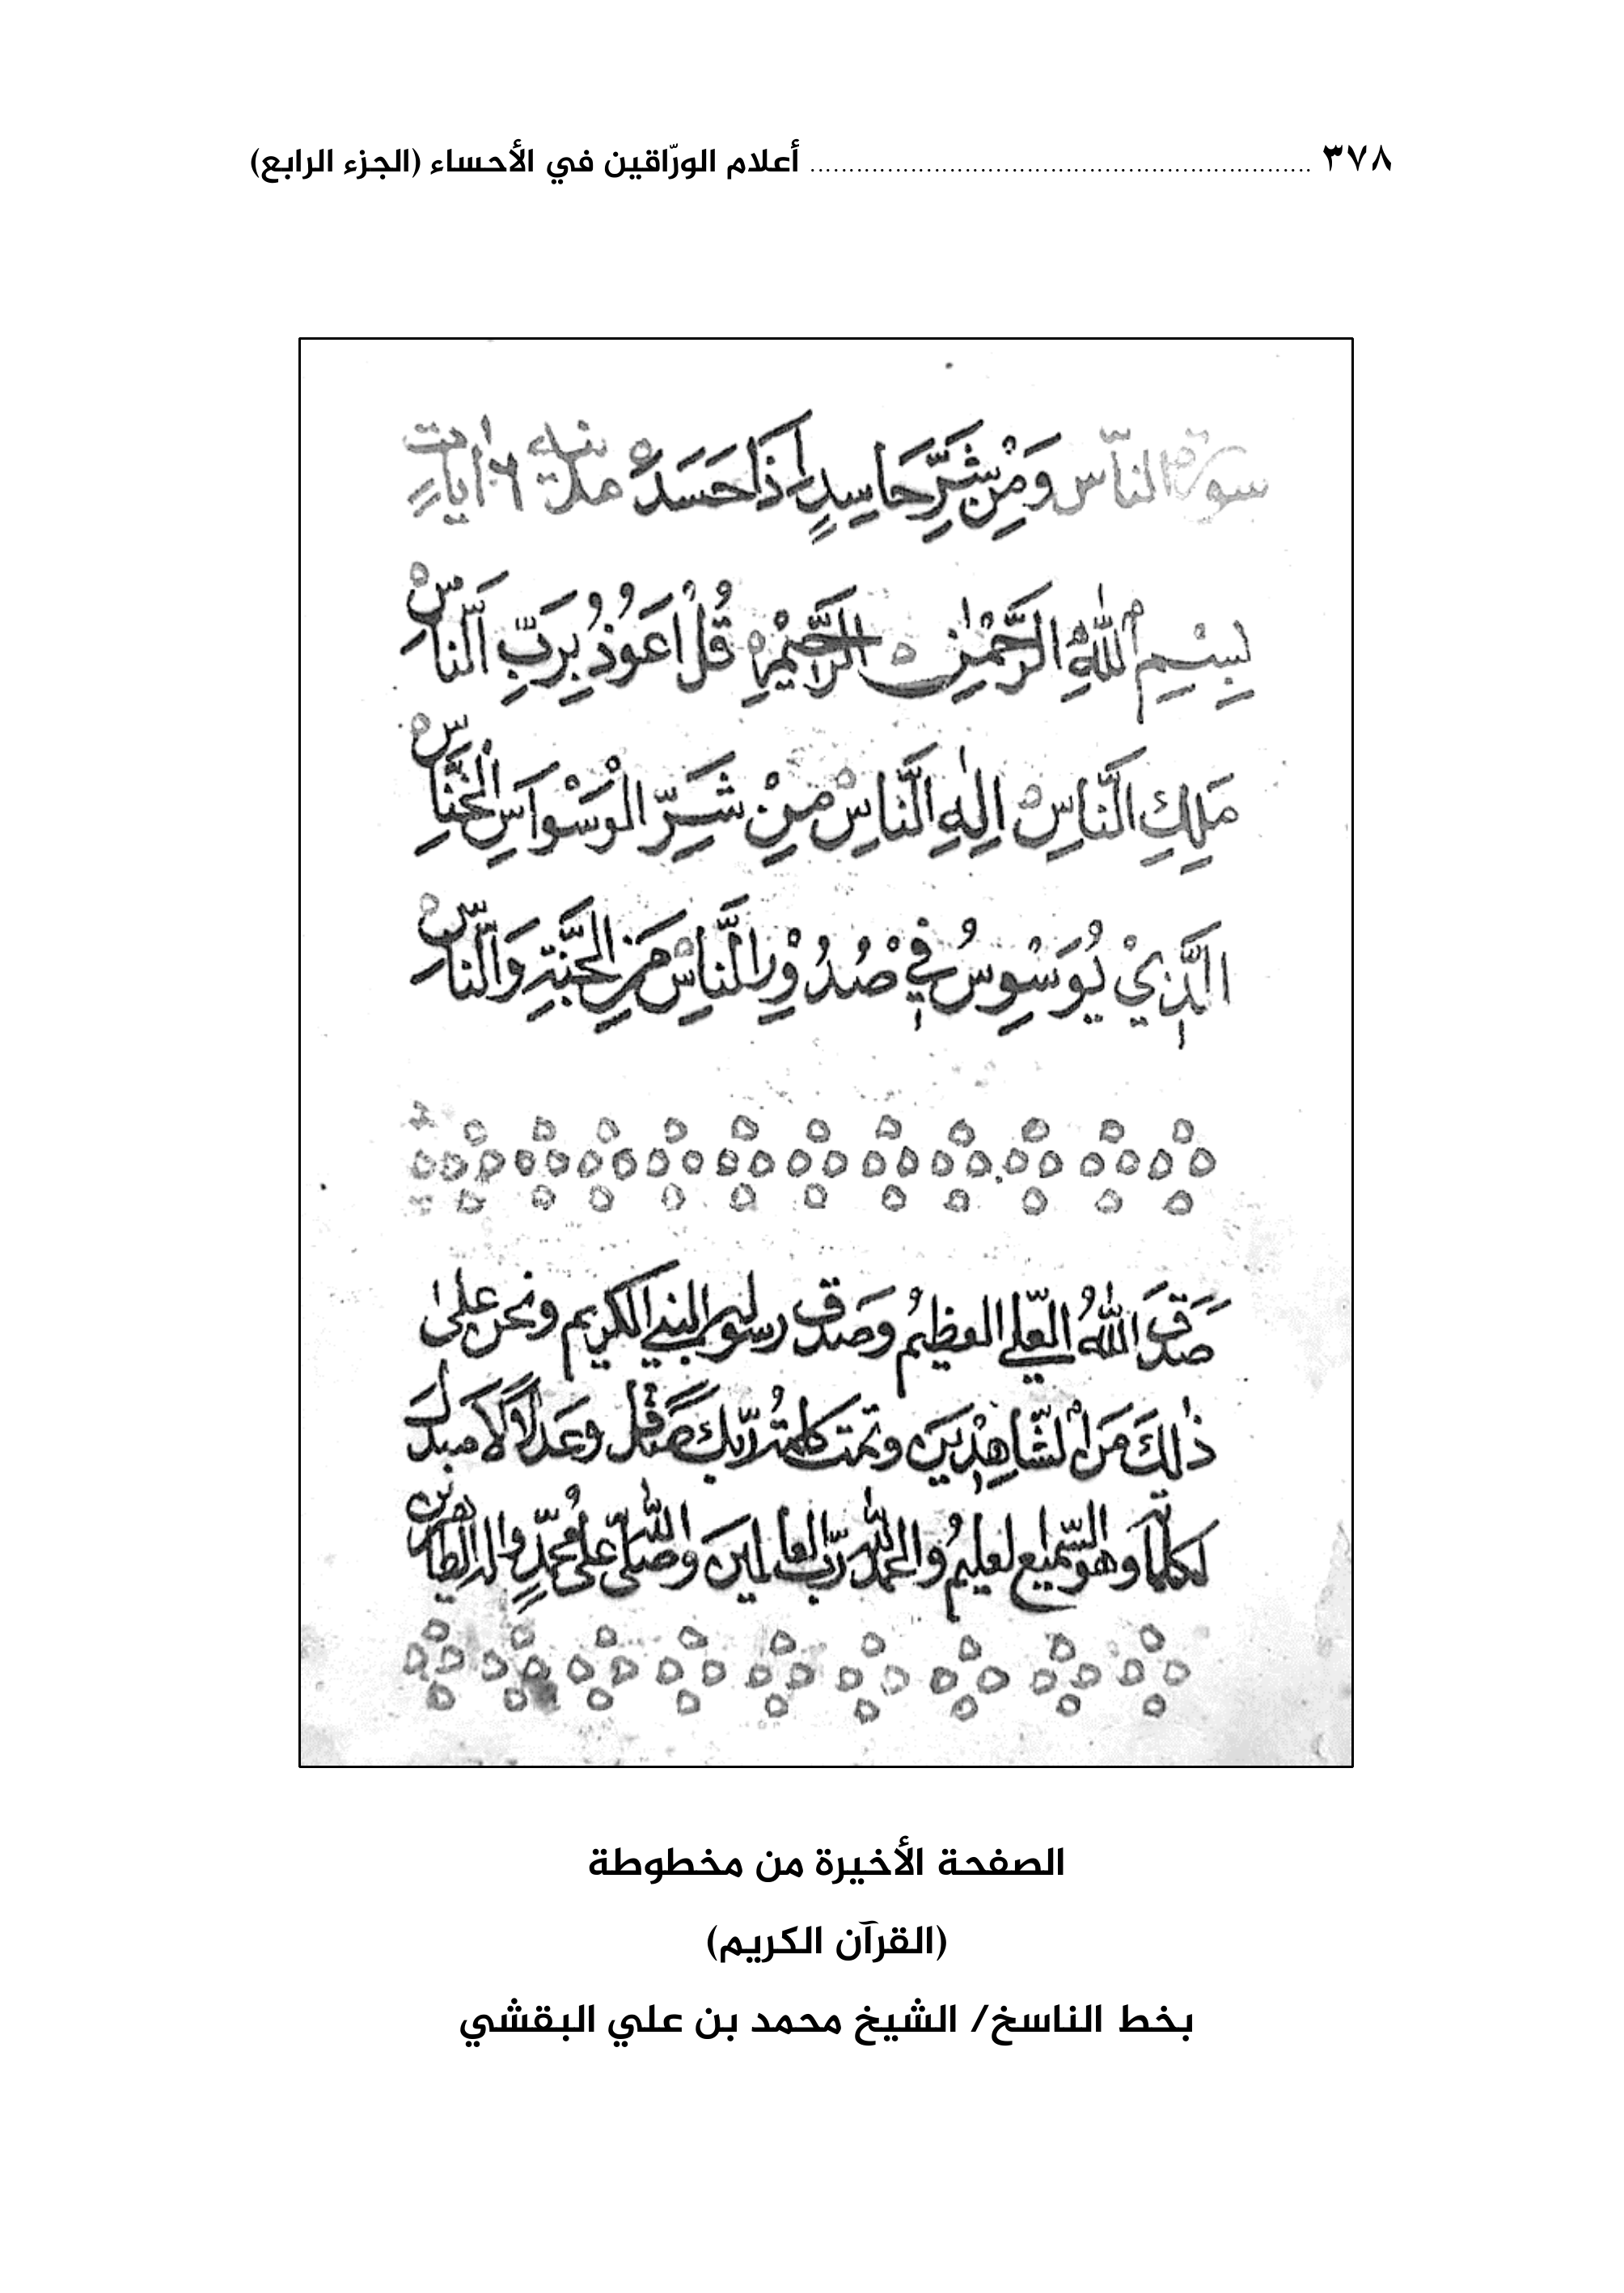 ٣٧٨ ............................................................... أعلام الورّاقين في الأحساء (الجزء الرابع)
سورة الناس وَمِنْ شَرِّ حَاسِدٍ اِذَا حَسَدَ مدنيه ٦ ايات
بِسْمِ اللّٰهِ الرَّحْمٰنِ الرَّحِيْمِ قُلْ اَعُوْذُ بِرَبِّ النَّاسِ
مَلِكِ النَّاسِ اِلٰهِ النَّاسِ مِنْ شَرِّ الْوَسْوَاسِ الْخَنَّاسِ
الَّذِيْ يُوَسْوِسُ فِيْ صُدُوْرِ النَّاسِ مِنَ الْجِنَّةِ وَالنَّاسِ
صَدَقَ اللّٰهُ العَلِيّ العظيمُ وصَدَق رسوله النبي الكريم ونحن على
ذٰلِكَ مَن الشّاهِدِيَن وتمت كلمتُ رَبّك صدقًا وعَدلًا لَا مبدلَ
لكلماته وهو السّميع لعليمُ والحمدُ للّٰه رَبّ العالمينَ وصلّى اللّٰه على مُحمّدٍ واله الطاهرين
الصفحة الأخيرة من مخطوطة
(القرآن الكريم)
بخط الناسخ/ الشيخ محمد بن علي البقشي